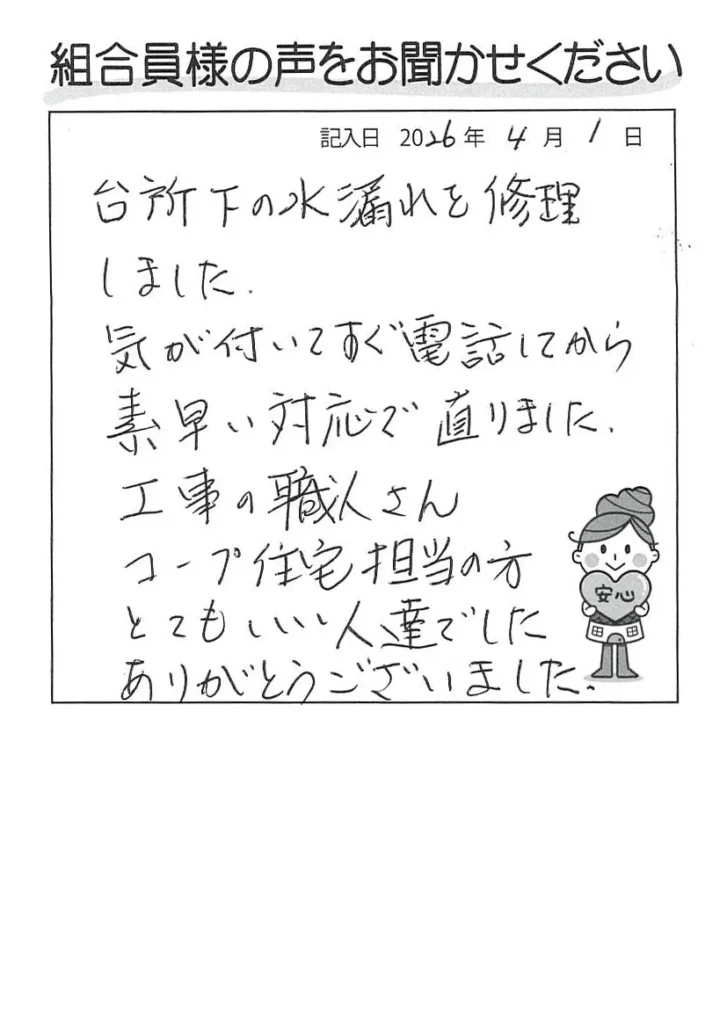 組合員様の声をお聞かせください
記入日 2026年 4月 1日
台所下の水漏れを修理
しました.
気が付いてすぐ電話してから
素早い対応で直りました.
工事の職人さん
コープ住宅担当の方
とてもいい人達でした
ありがとうございました.
安心